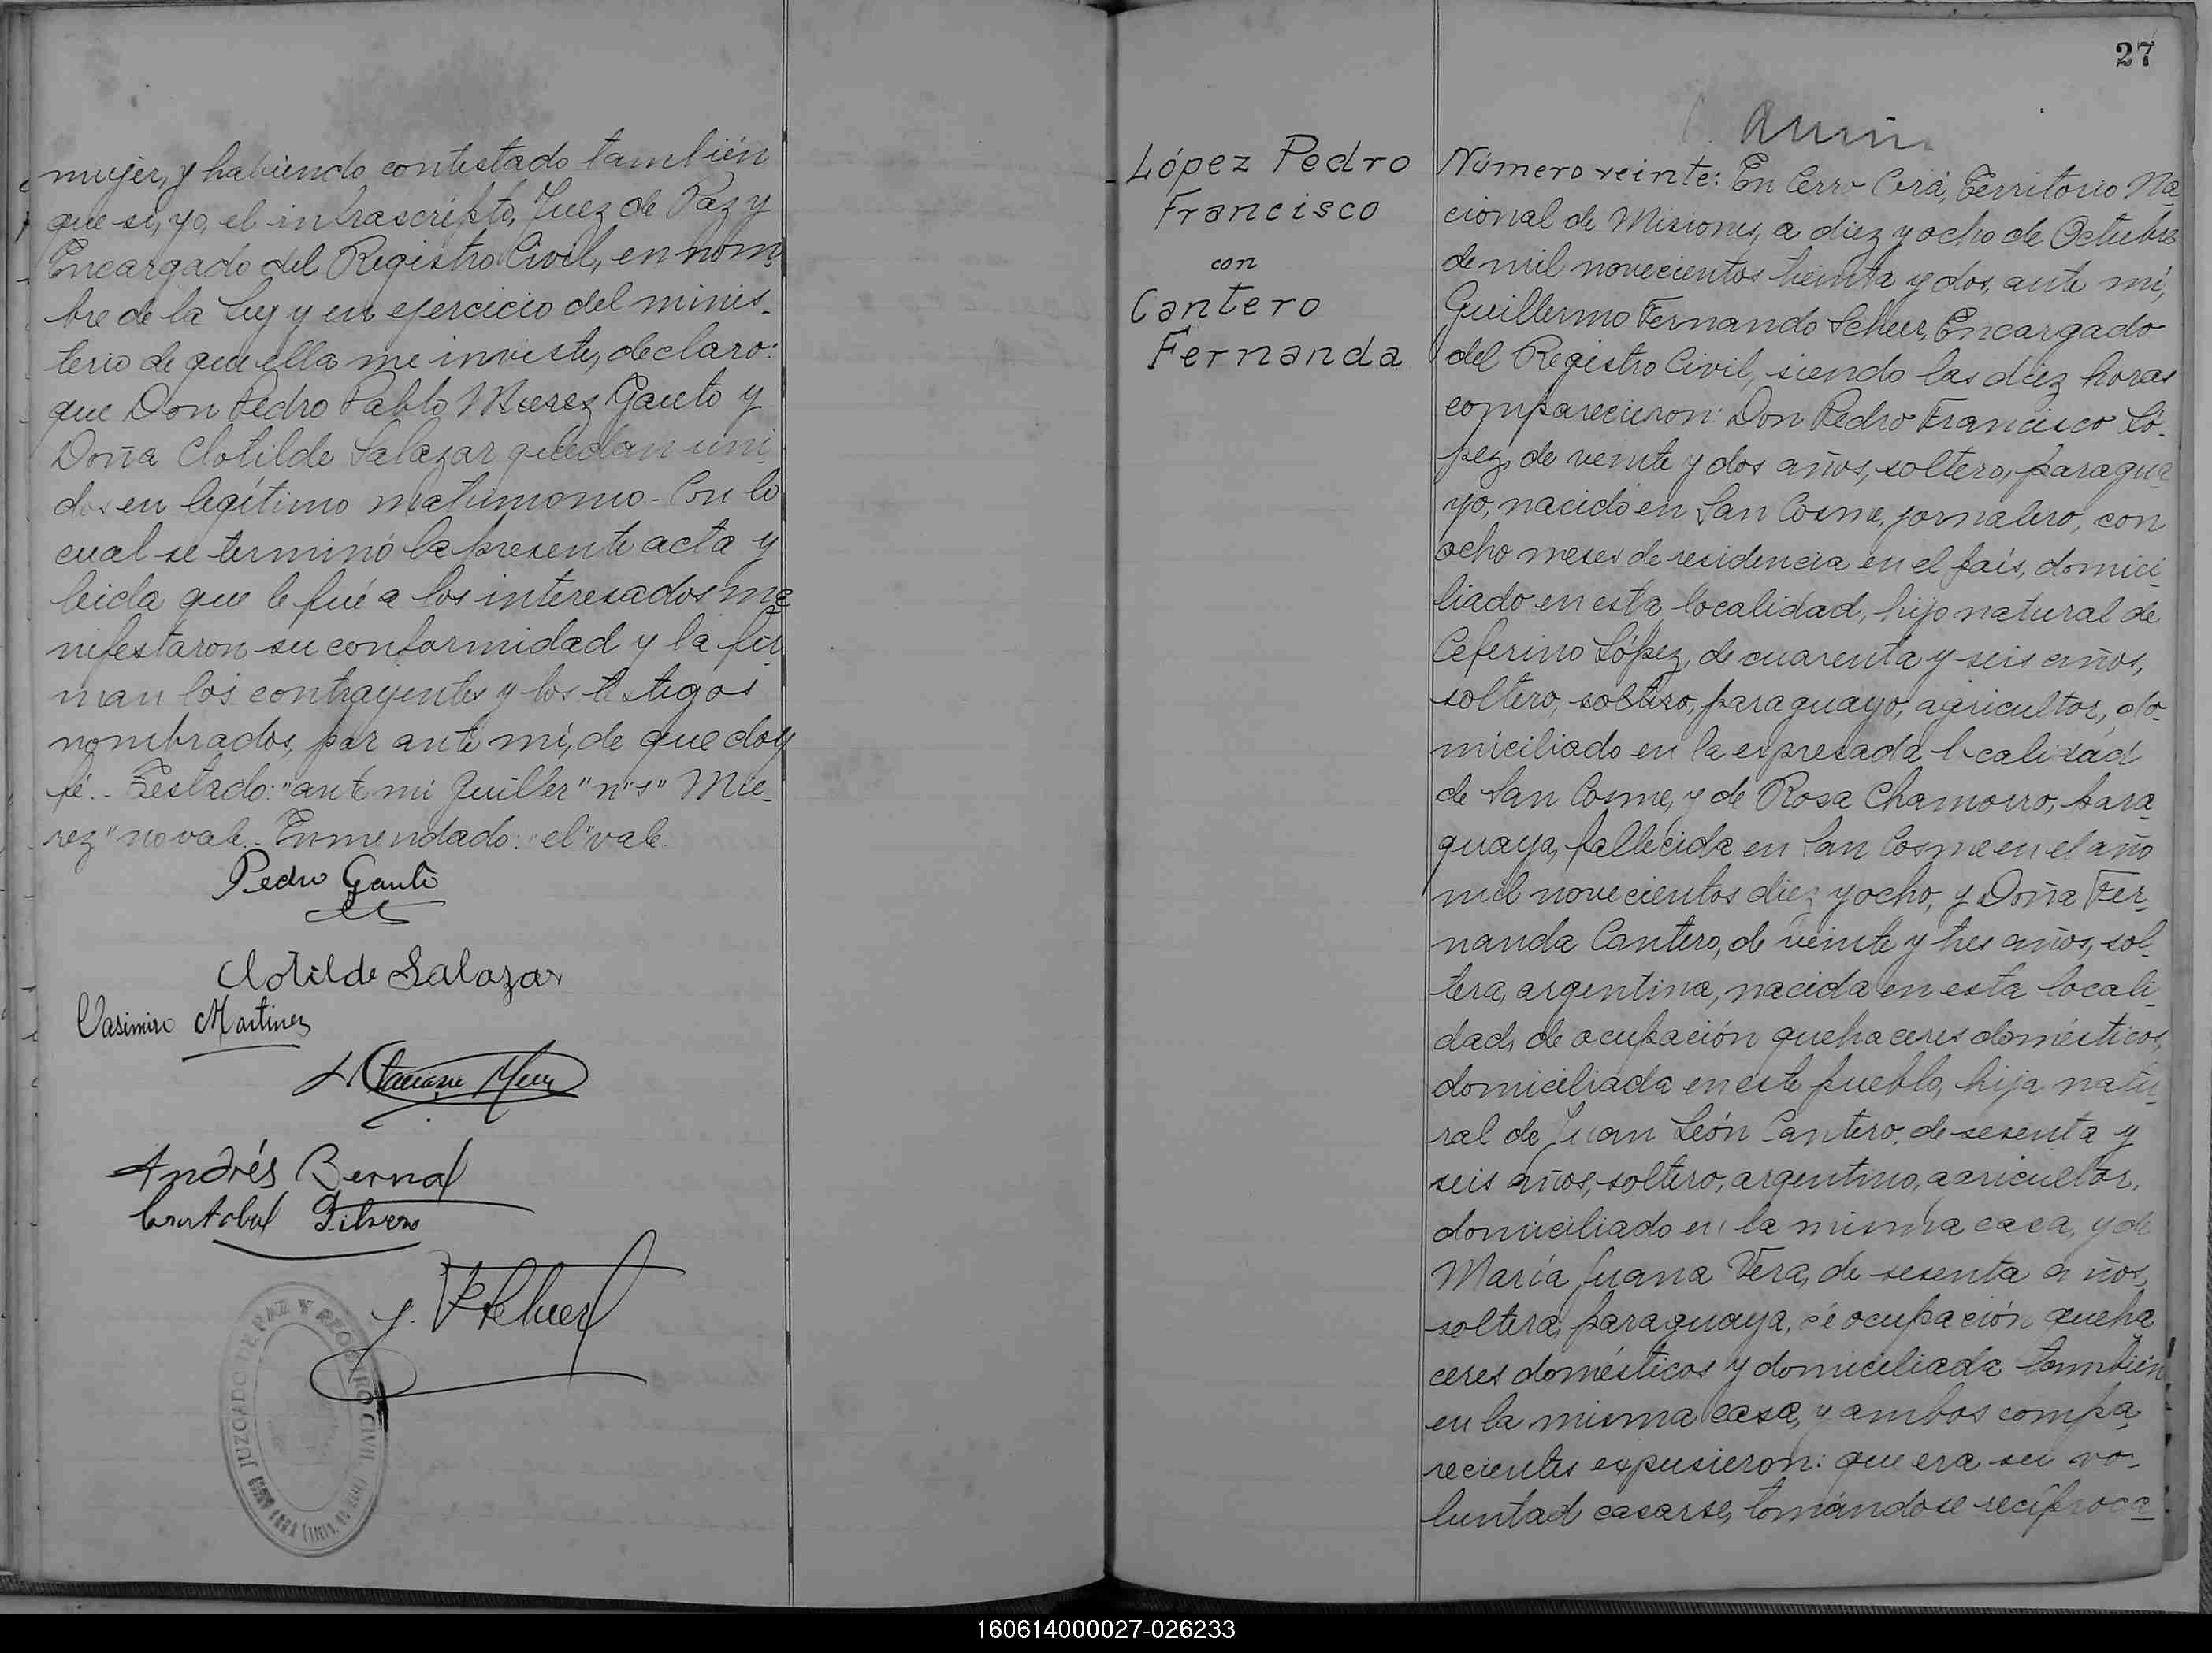 mujer, y habiendo contestado también
que si, yo, el infrascripto, Juez de Paz y
Encargado del Registro Civil, en nom-
bre de la Ley y en ejercicio del minis-
terio de que ella me inviste, declaro:
que Don Pedro Pablo Mierez Gauto y
Doña Clotilde Salazar quedan uni-
dos en legítimo matrimonio - Con lo
cual se terminó la presente acta y
leida que le fué a los interesados ma
nifestaron su conformidad y la fir-
man los contrayentes y los testigos
nombrados, por ante mí, de que doy
fé.. Testado: "ante mi Guiller" "n" "s" Mie-
rez" no vale.. Enmendado: "el" vale.
Pedro Gauto
Clotilde Salazar
Casimiro Martinez
Andrés Bernal
Cristobal
JUZGADO DE PAZ Y REGISTRO CIVIL
27
López Pedro
Francisco
con
Cantero
Fernanda
Número veinte: En Cerro Corá, Territorio Na-
cional de Misiones, a diez y ocho de Octubre
de mil novecientos treinta y dos, ante mí,
Guillermo Fernando Scheer, Encargado
del Registro Civil, siendo las diez horas
comparecieron: Don Pedro Francisco Ló-
pez, de veinte y dos años, soltero, paragua-
yo, nacido en San Cosme, jornalero, con
ocho meses de residencia en el país, domici-
liado en esta localidad, hijo natural de
Ceferino López, de cuarenta y seis años,
soltero, soltero, paraguayo, agricultor, do-
miciliado en la expresada localidad
de San Cosme, y de Rosa Chamorro, para-
guaya, fallecida en San Cosme en el año
mil novecientos diez y ocho, y Doña Fer-
nanda Cantero, de veinte y tres años, sol-
tera, argentina, nacida en esta locali-
dad, de ocupación quehaceres domésticos,
domiciliada en este pueblo, hija natu-
ral de Juan León Cantero, de sesenta y
seis años, soltero, argentino, agricultor,
domiciliado en la misma casa, y de
María Juana Vera, de sesenta años,
soltera, paraguaya, de ocupación queha-
ceres domésticos y domiciliada también
en la misma casa, y ambos compa-
recientes expusieron: que era su vo-
luntad casarse, tomándose recíproca-
160614000027-026233